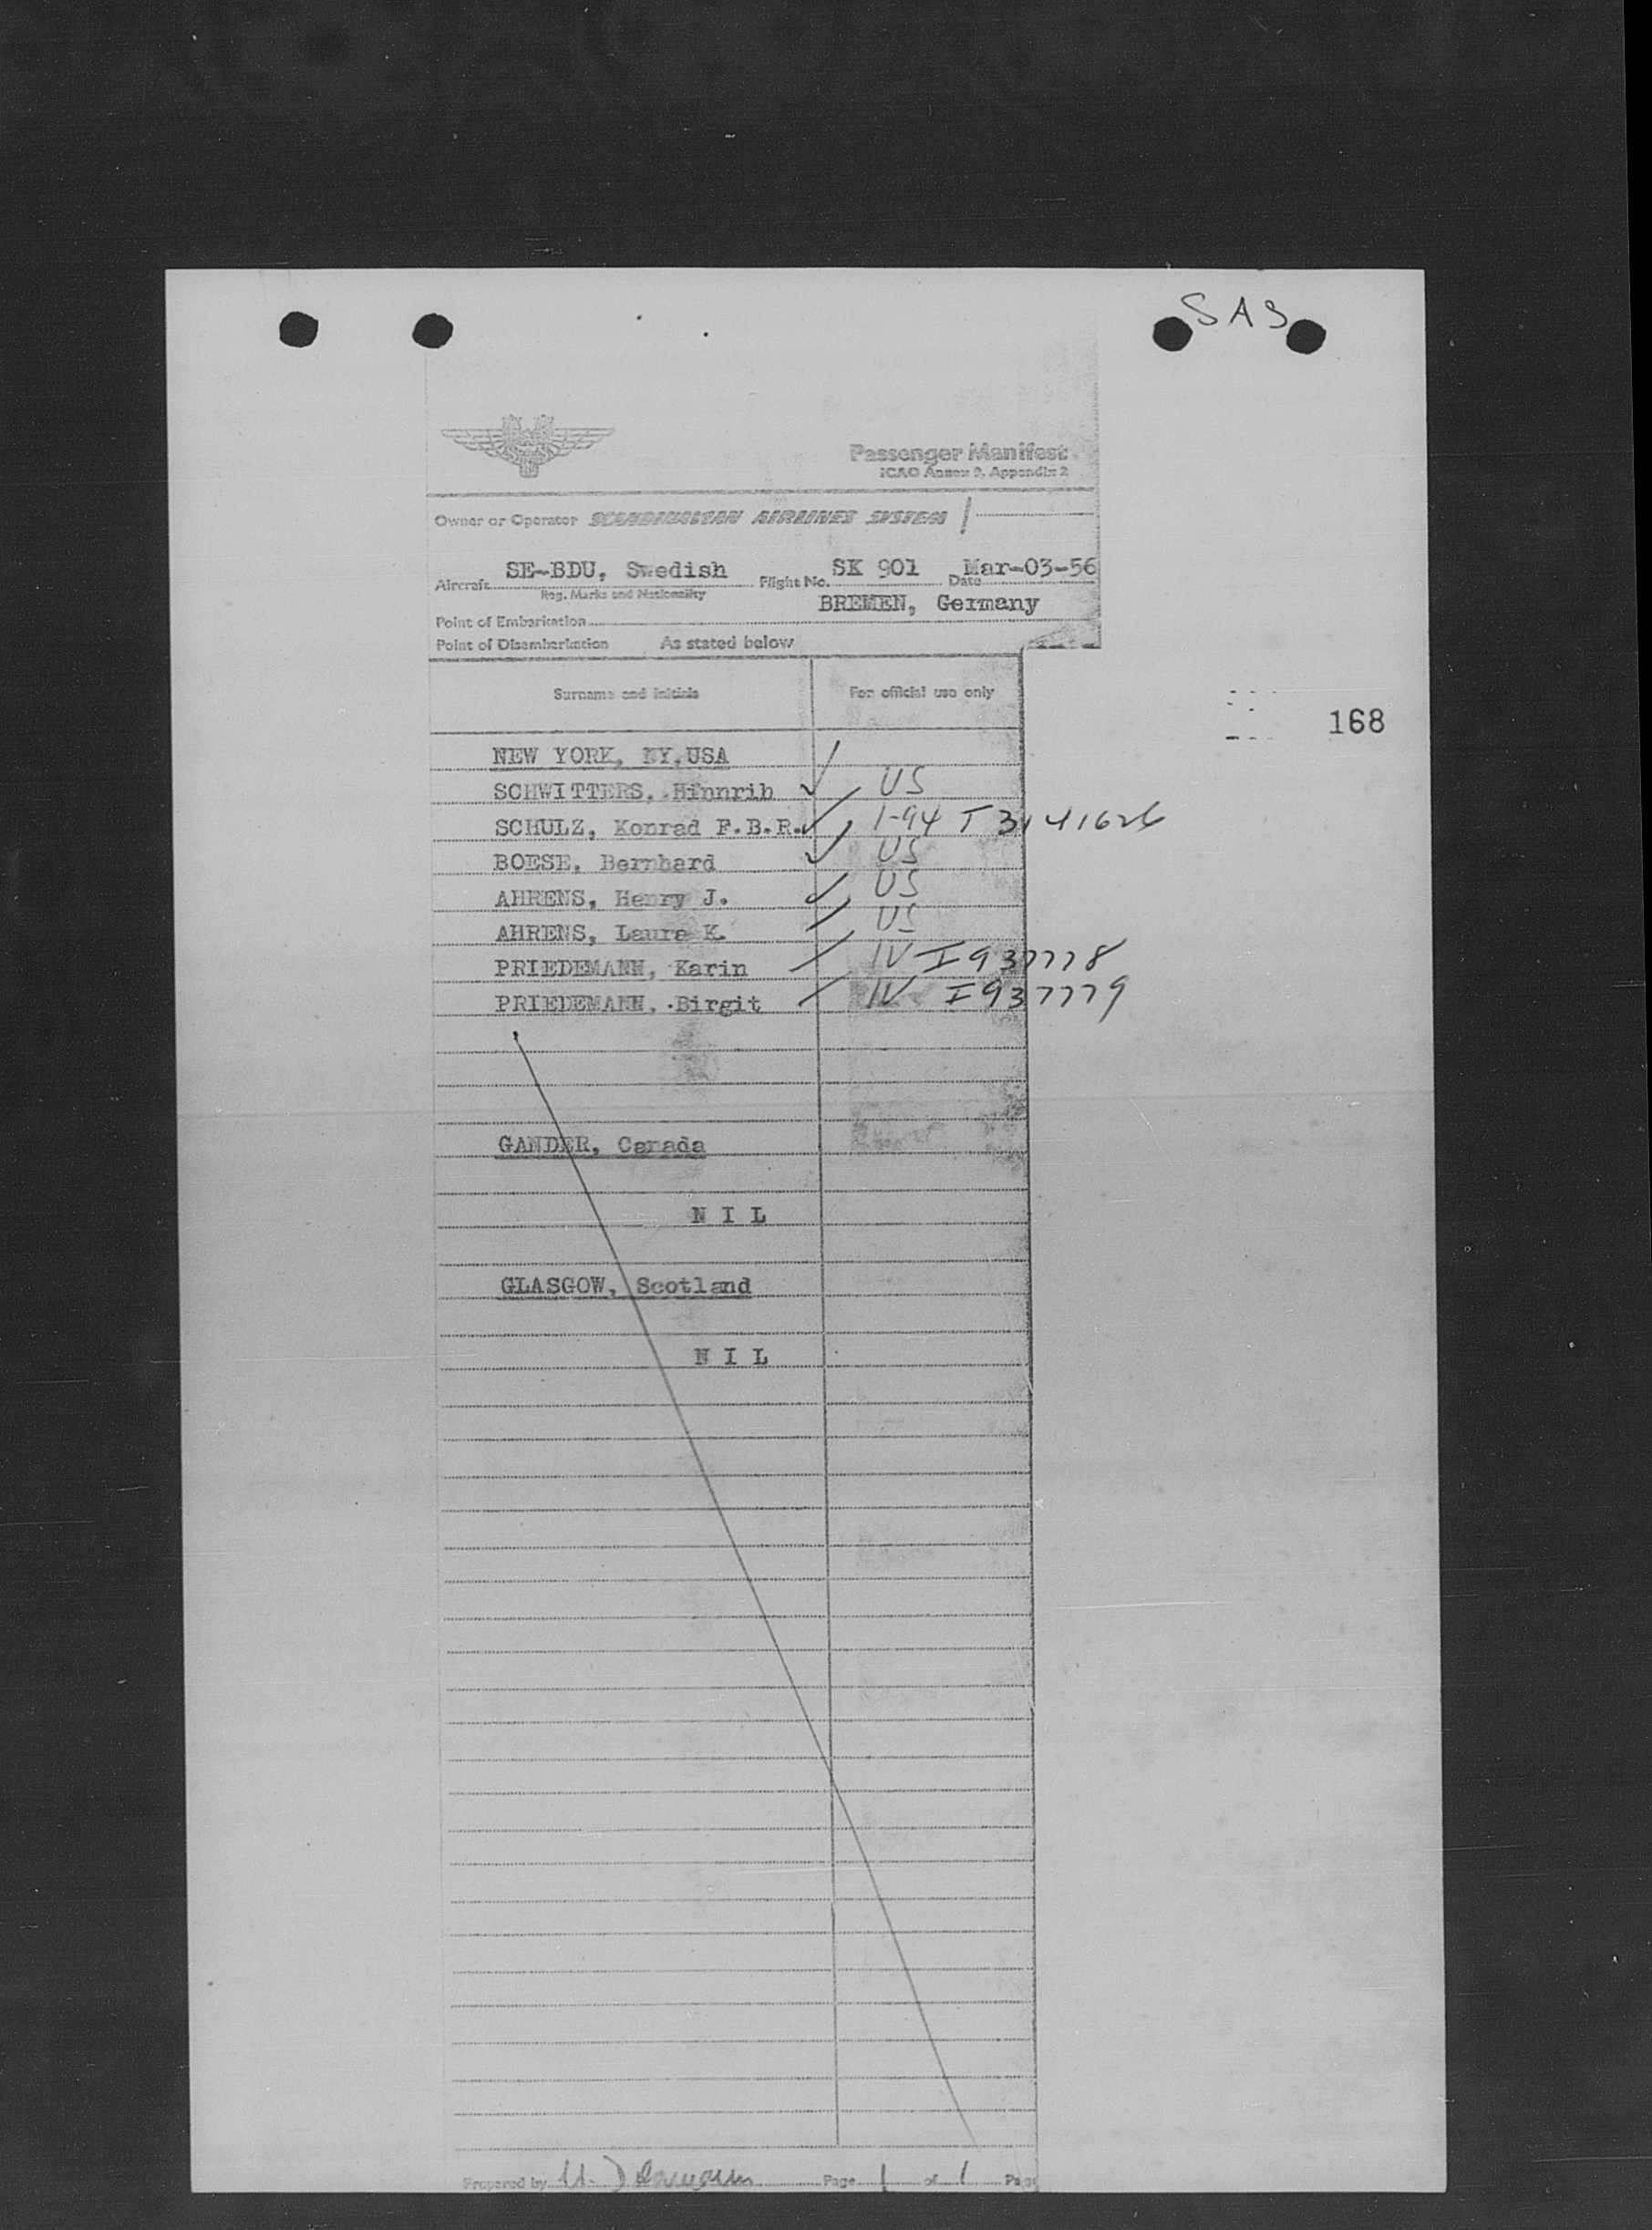 SAS
Passenger Manifest
ICAO Annex 9, Appendix 2
Owner or Operator SCANDINAVIAN AIRLINES SYSTEM
Aircraft SE-BDU, Swedish Flight No. SK 901 Date Mar-03-56
Reg. Marks and Nationality
Point of Embarkation BREMEN, Germany
Point of Disembarkation As stated below
Surname and initials For official use only
168
NEW YORK, NY,USA
SCHWITTERS, Hinnrih US
SCHULZ, Konrad F.B.R. I-94 T 3141626
BOESE, Bernhard US
AHRENS, Henry J. US
AHRENS, Laura K. US
PRIEDEMANN, Karin IV I937778
PRIEDEMANN, Birgit IV I937779
GANDER, Canada
N I L
GLASGOW, Scotland
N I L
Prepared by Page 1 of 1 Page